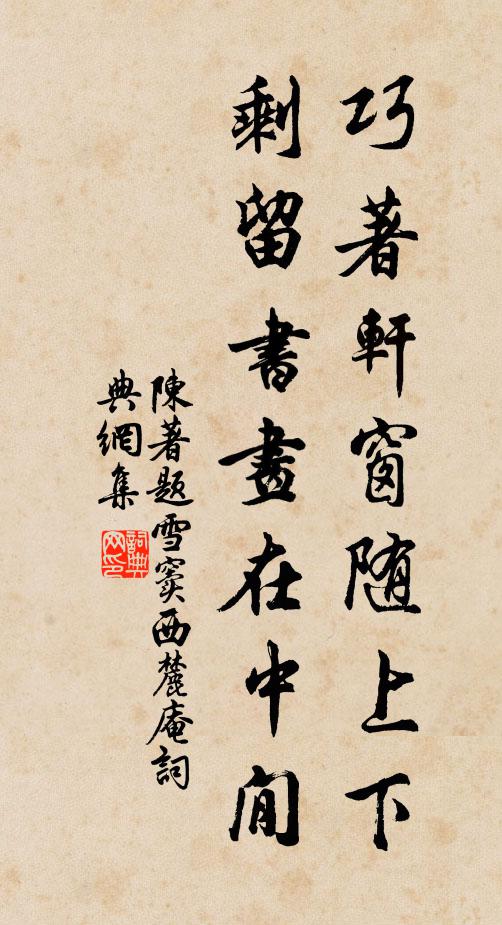 巧著軒窗随上下
剩留書畫在中間
陳著题雪窦西麓庵詞
典網集
詞典網印